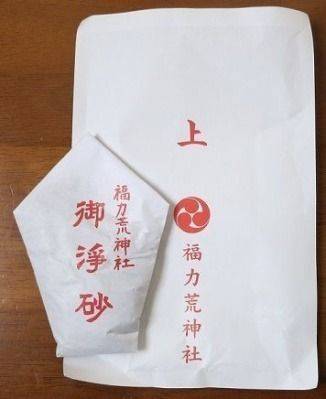 上
福力荒神社
福力荒神社
御淨砂